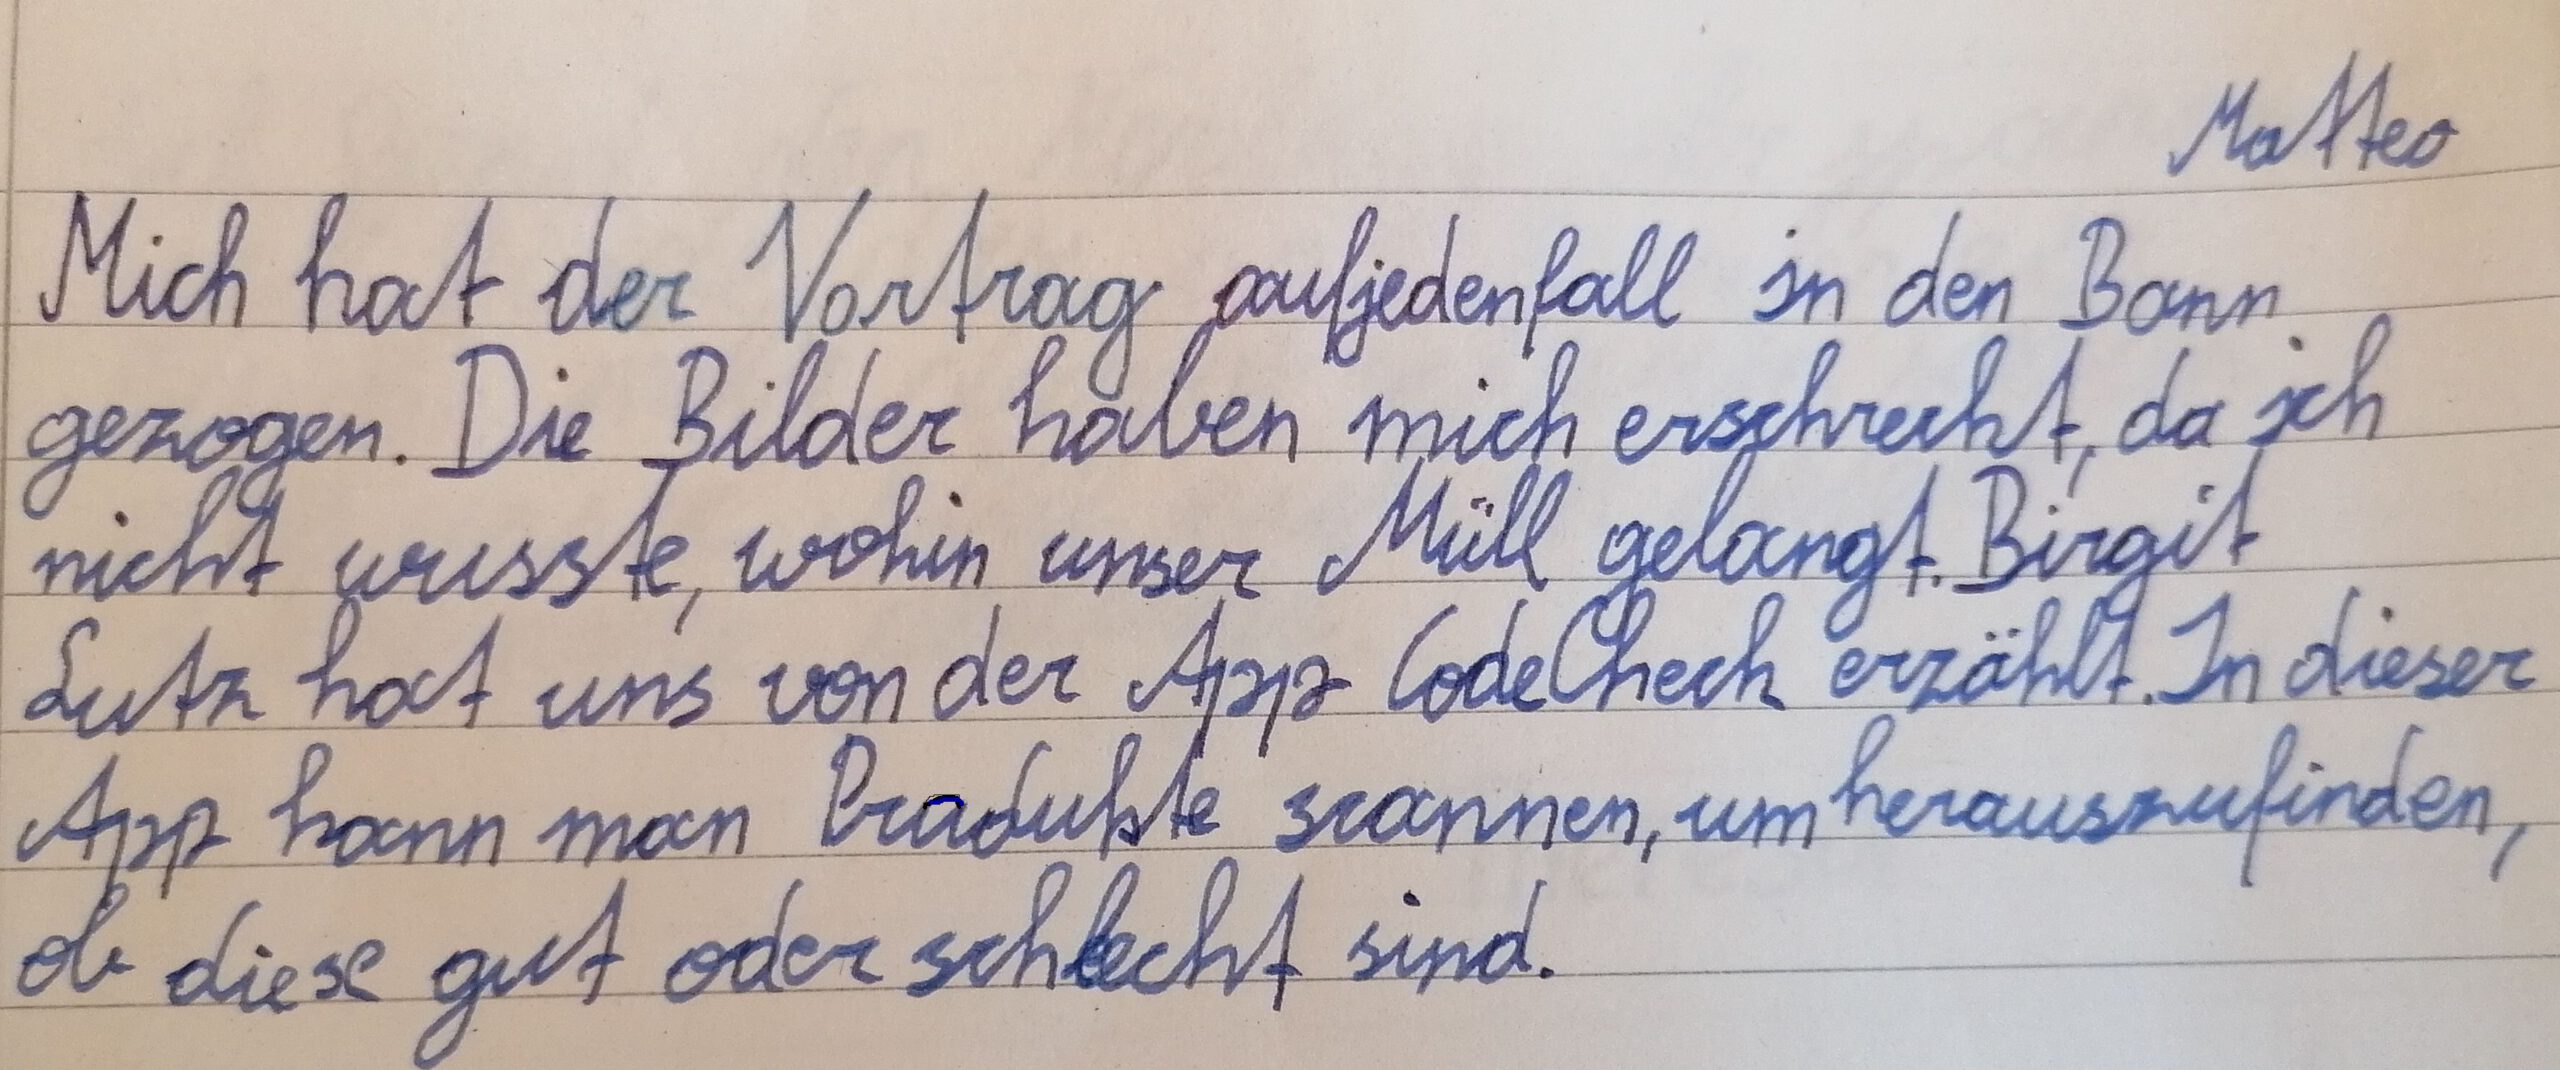 Matteo
Mich hat der Vortrag aufjedenfall in den Bann
gezogen. Die Bilder haben mich erschreckt, da ich
nicht wusste, wohin unser Müll gelangt. Birgit
Lutz hat uns von der App CodeCheck erzählt. In dieser
App kann man Produkte scannen, um herauszufinden,
ob diese gut oder schlecht sind.